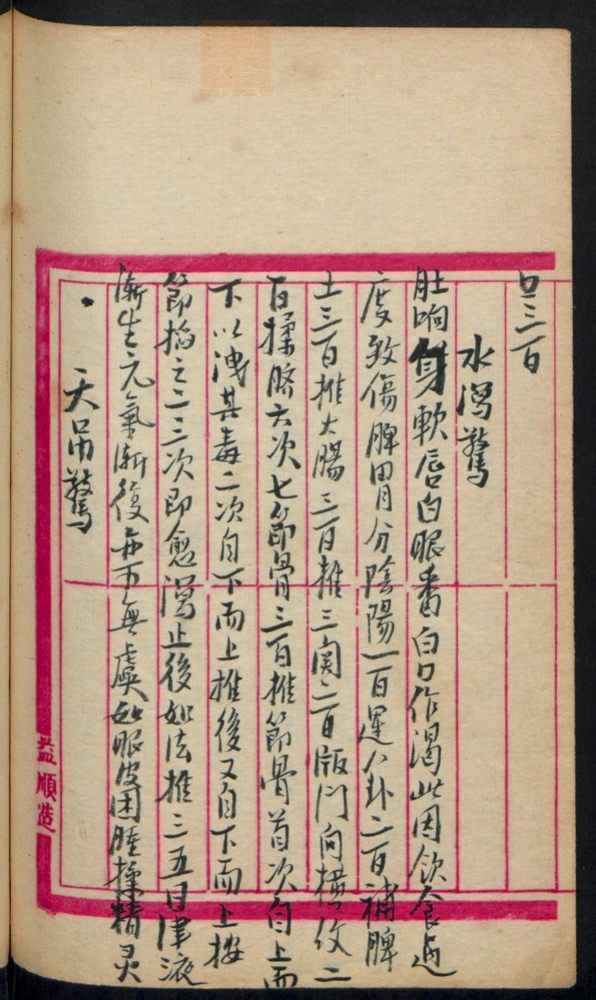 呂三百
水瀉驚
肚响身軟唇白眼番白口作渴此因飲食過
度致傷脾胃分陰陽一百運八卦二百補脾
土三百推大腸三百推三関二百版门向橫紋二
百揉臍六次七節骨三百推節骨首次自上而
下以洩其毒二次自下而上推後又自下而上按
節掐之二三次即愈瀉止後如法推三五日津液
漸生元氣漸復無虞如眼皮困腫揉精灵
天吊驚
益順造